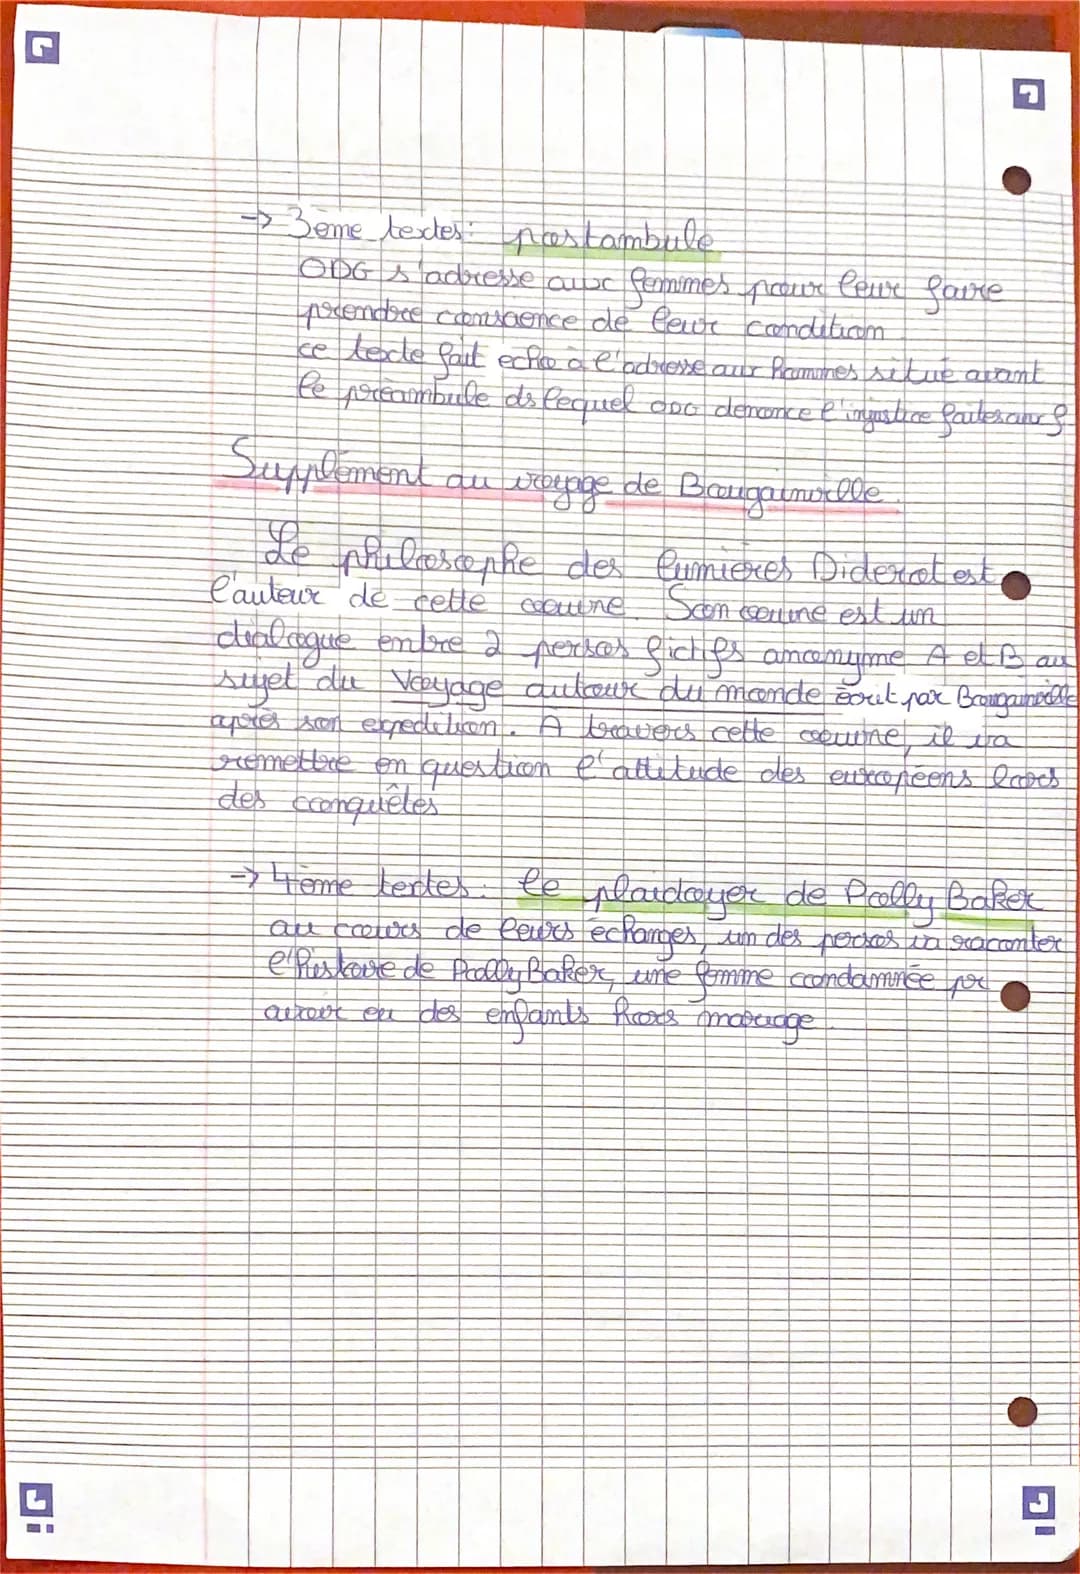 -> 3ème textes : postambule
ODG s'adresse aux femmes pour leur faire
prendre conscience de leur condition
ce texte fait echo à l'adresse aux hommes situé avant
le préambule ds lequel ODG dénonce l'injustice faites aux f
Supplément au voyage de Bougainville
Le philosophe des lumières Diderot est
l'auteur de cette oeuvre. Son oeuvre est un
dialogue entre 2 persos fictifs anonyme A et B au
sujet du Voyage autour du monde écrit par Bougainville
après son expedition. A travers cette oeuvre, il va
remettre en question l'attitude des européens lors
des conquêtes
-> 4ème textes : le plaidoyer de Polly Baker
au cours de leurs échanges, un des persos va raconter
l'histoire de Polly Baker, une femme condamnée pr
avoir eu des enfants hors mariage